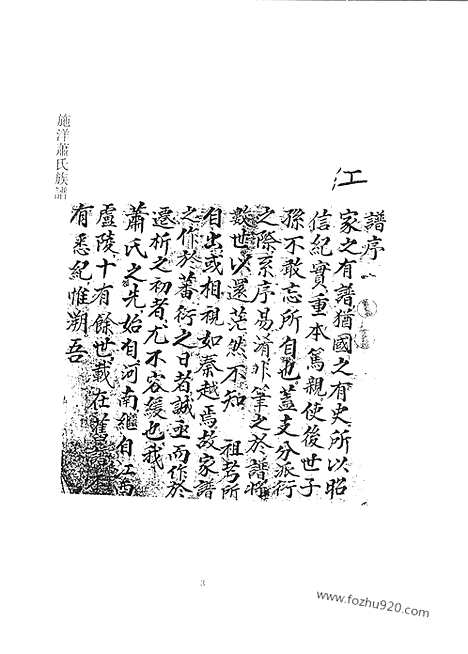 江
譜序
家之有譜猶國之有史所以昭
信紀實重本篤親使後世子
孫不敢忘所自也蓋支分派衍
之際系序易淆非筆之於譜將
數世以還茫然不知 祖考所
自出或相視如秦越焉故家譜
之作於蕃衍之日者誠主而作於
遷析之初者尤不容緩也我
蕭氏之先始自河南繼自江西
盧陵十有餘世載在舊
有悉紀惟溯吾
施洋蕭氏族譜
3
www.fozhu920.com